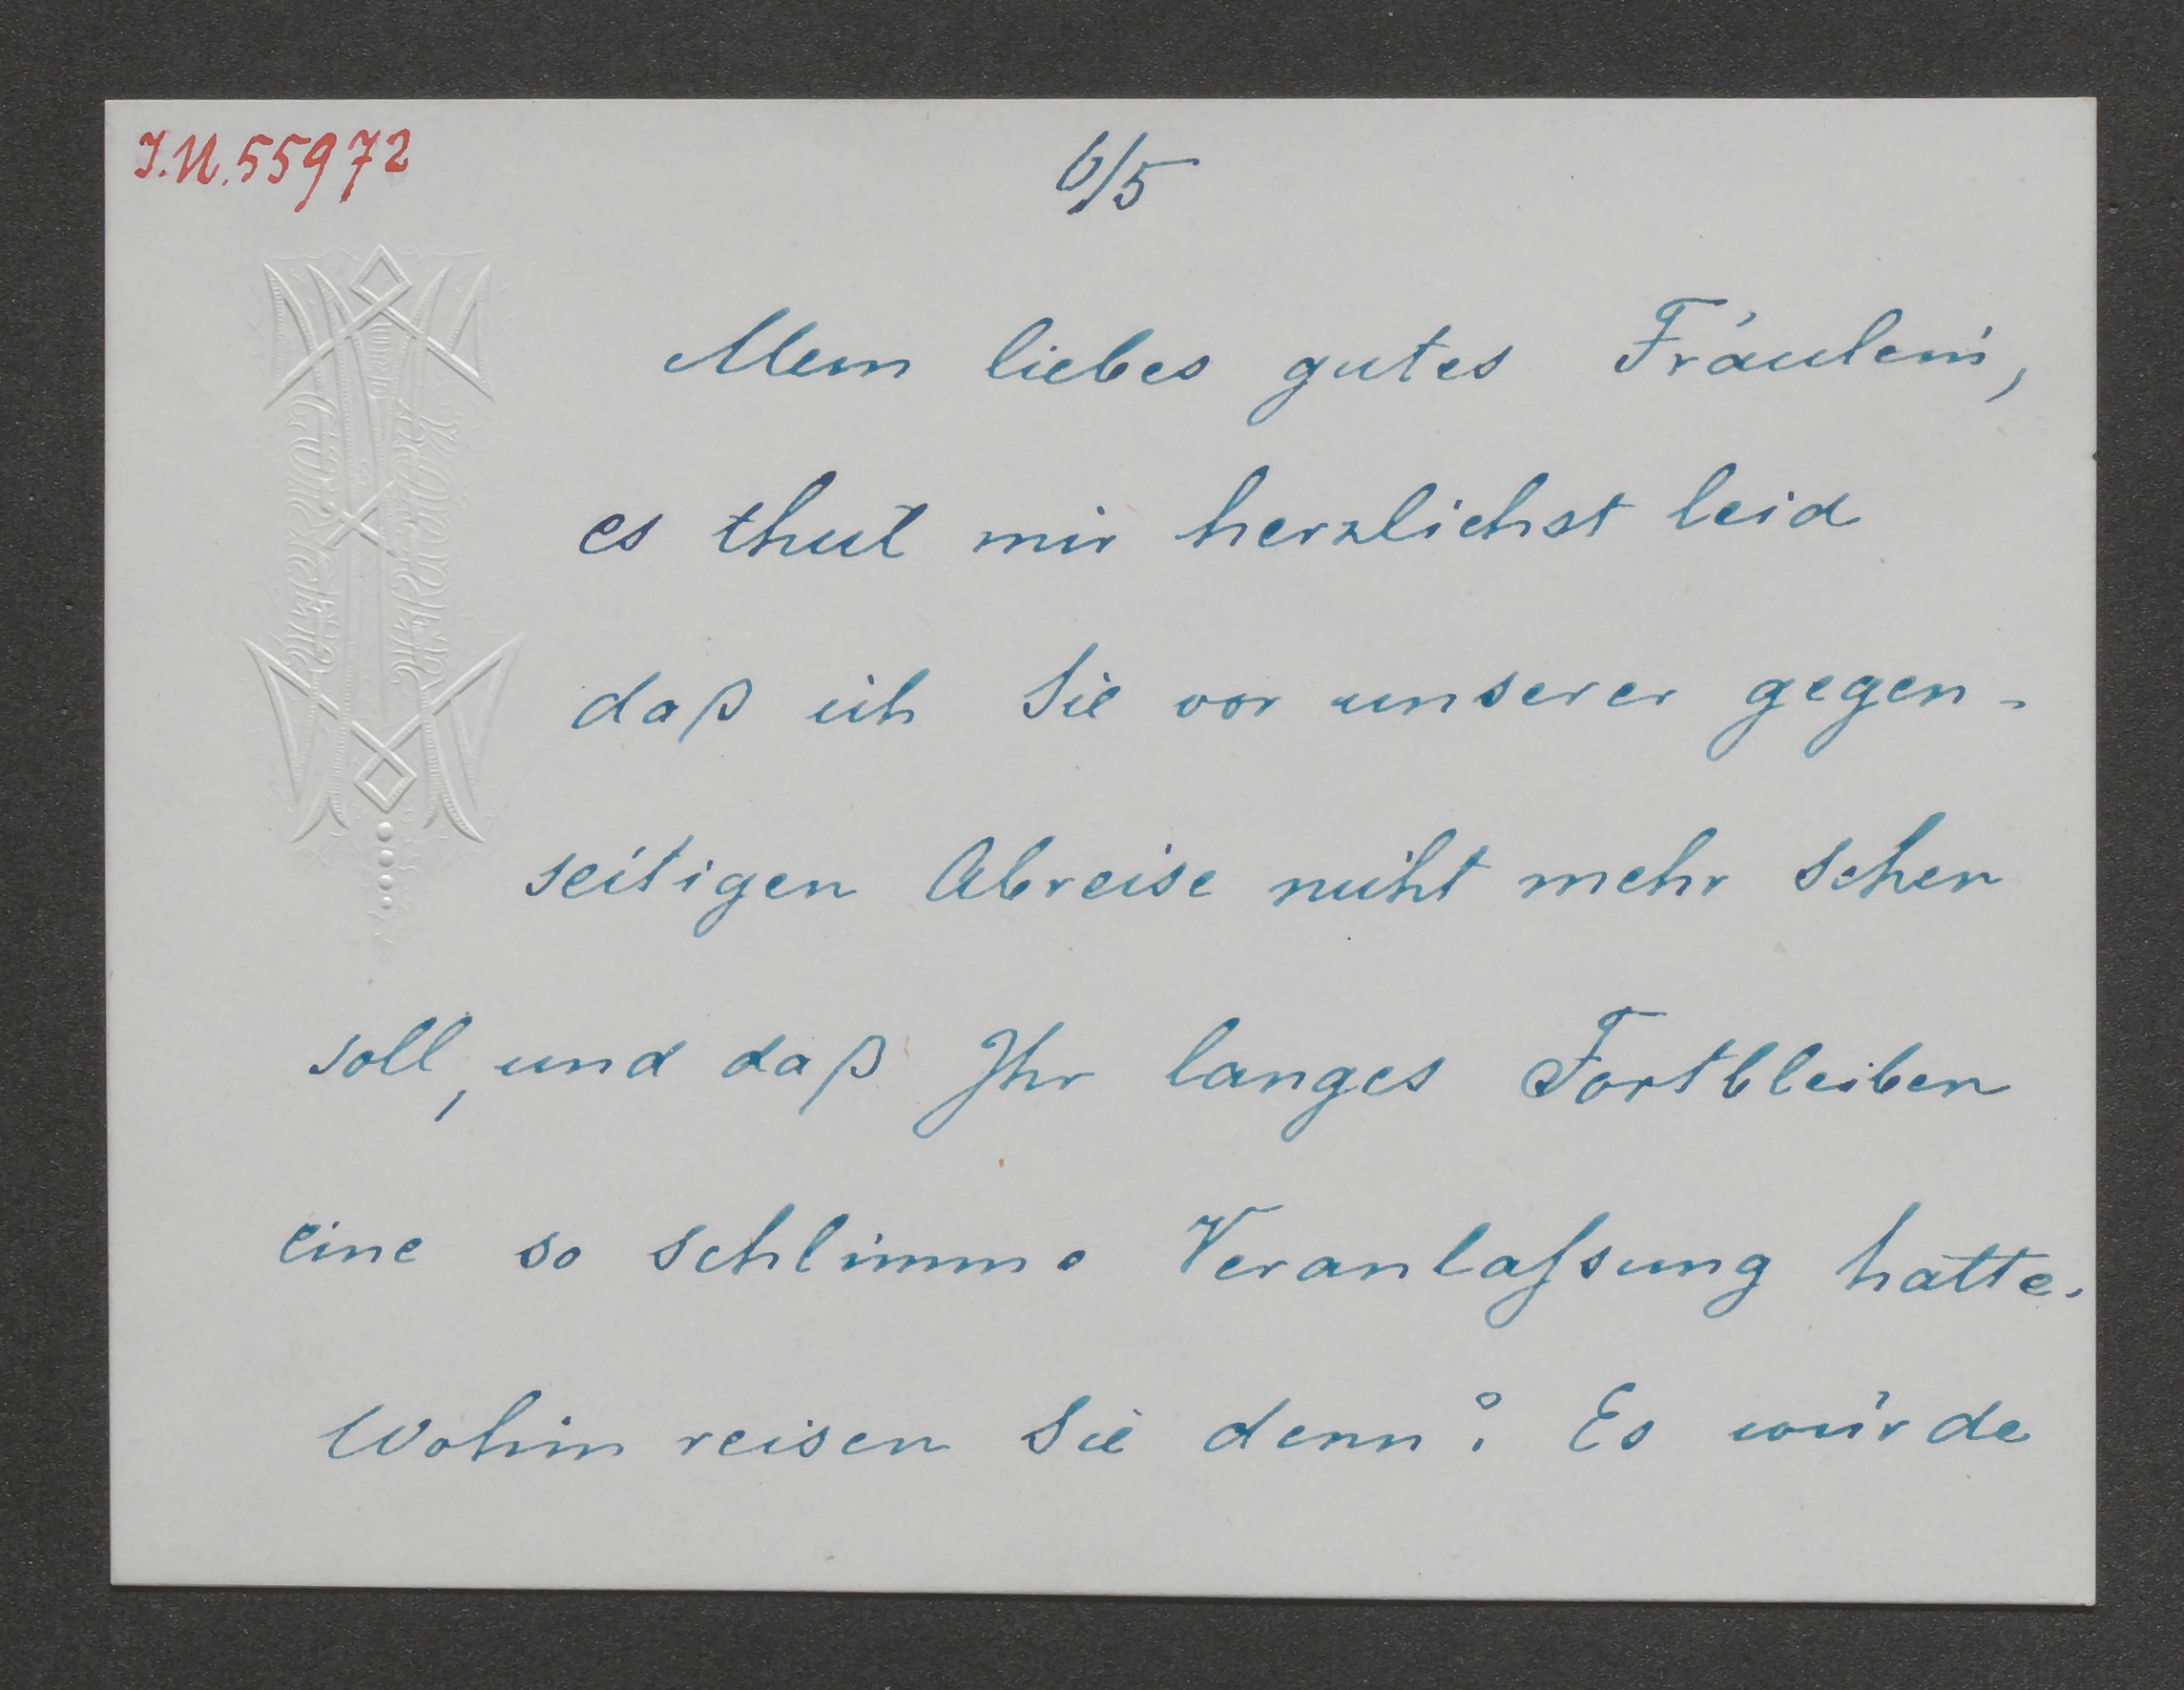 I.N. 55972
6/5
Mein liebes gutes Fräulein,
es thut mir herzlichst leid
daß ich Sie vor unserer gegen-
seitigen Abreise nicht mehr sehen
soll, und daß Ihr langes Fortbleiben
eine so schlimme Veranlaſsung hatte.
Wohin reisen Sie denn? Es würde